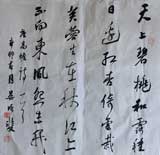 天上碧桃和露種
日邊紅杏倚雲栽
芙蓉生在秋江上
不向東風怨未開
唐高蟾詩一首
辛卯